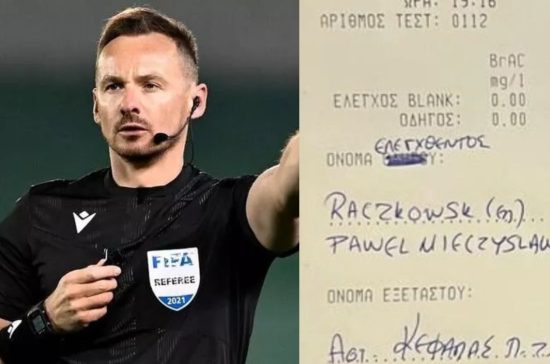 FIFA
REFEREE
2021
ΩΡΑ: 19:16
ΑΡΙΘΜΟΣ ΤΕΣΤ: 0112
BrAC
mg/l
ΕΛΕΓΧΟΣ BLANK: 0.00
ΟΔΗΓΟΣ: 0.00
ΕΛΕΓΧΘΕΝΤΟΣ
ΟΝΟΜΑ
RACZKOWSK
PAWEL MIECZYSLAW
ΟΝΟΜΑ ΕΞΕΤΑΣΤΟΥ:
ΚΕΦΑΛΑΣ